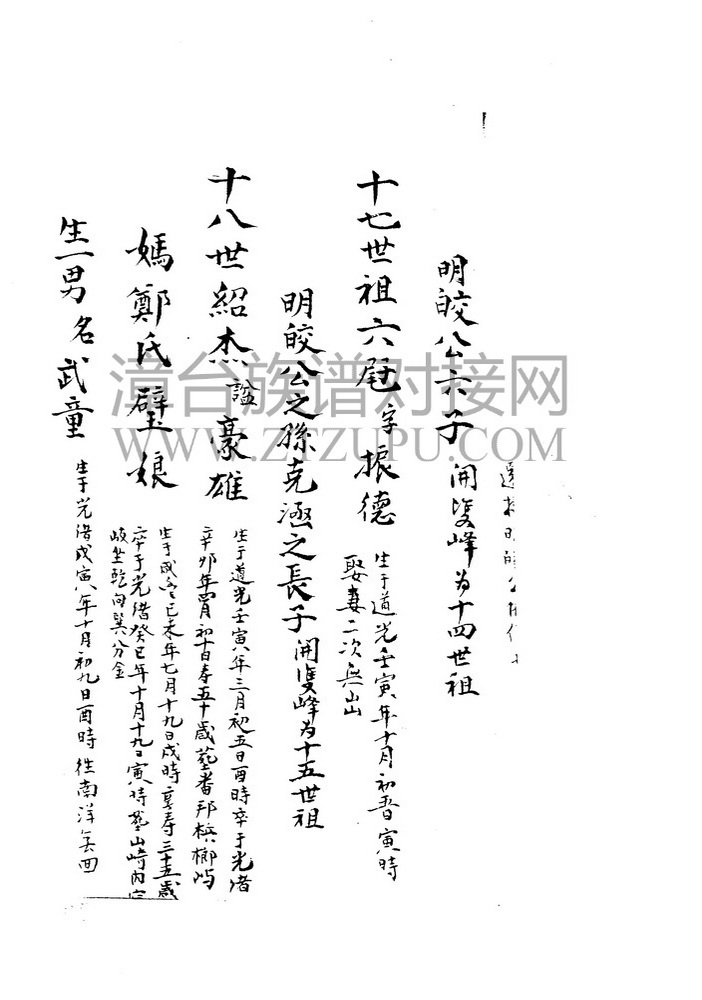 明皎公六子 開雙峰为十四世祖
十七世祖六屘 字振德 生于道光壬寅年十月初五日寅時
娶妻二次無出
明皎公之孫克涵之長子 開雙峰为十五世祖
十八世紹杰 謚豪雄 生于道光壬寅年三月初五日酉時卒于光渚
辛卯年四月初十日春五十歲葬番邦槟榔屿
媽鄭氏璧娘 生于咸豐己未年七月十九日戌時享寿三十五歲
卒于光绪癸巳年十月十九日寅時葬山崎内
岐坐乾向巽分金
生一男名武童 生于光渚戊寅年十月初九日酉時往南洋無回
漳台族谱对接网
WWW.ZTZUPU.COM